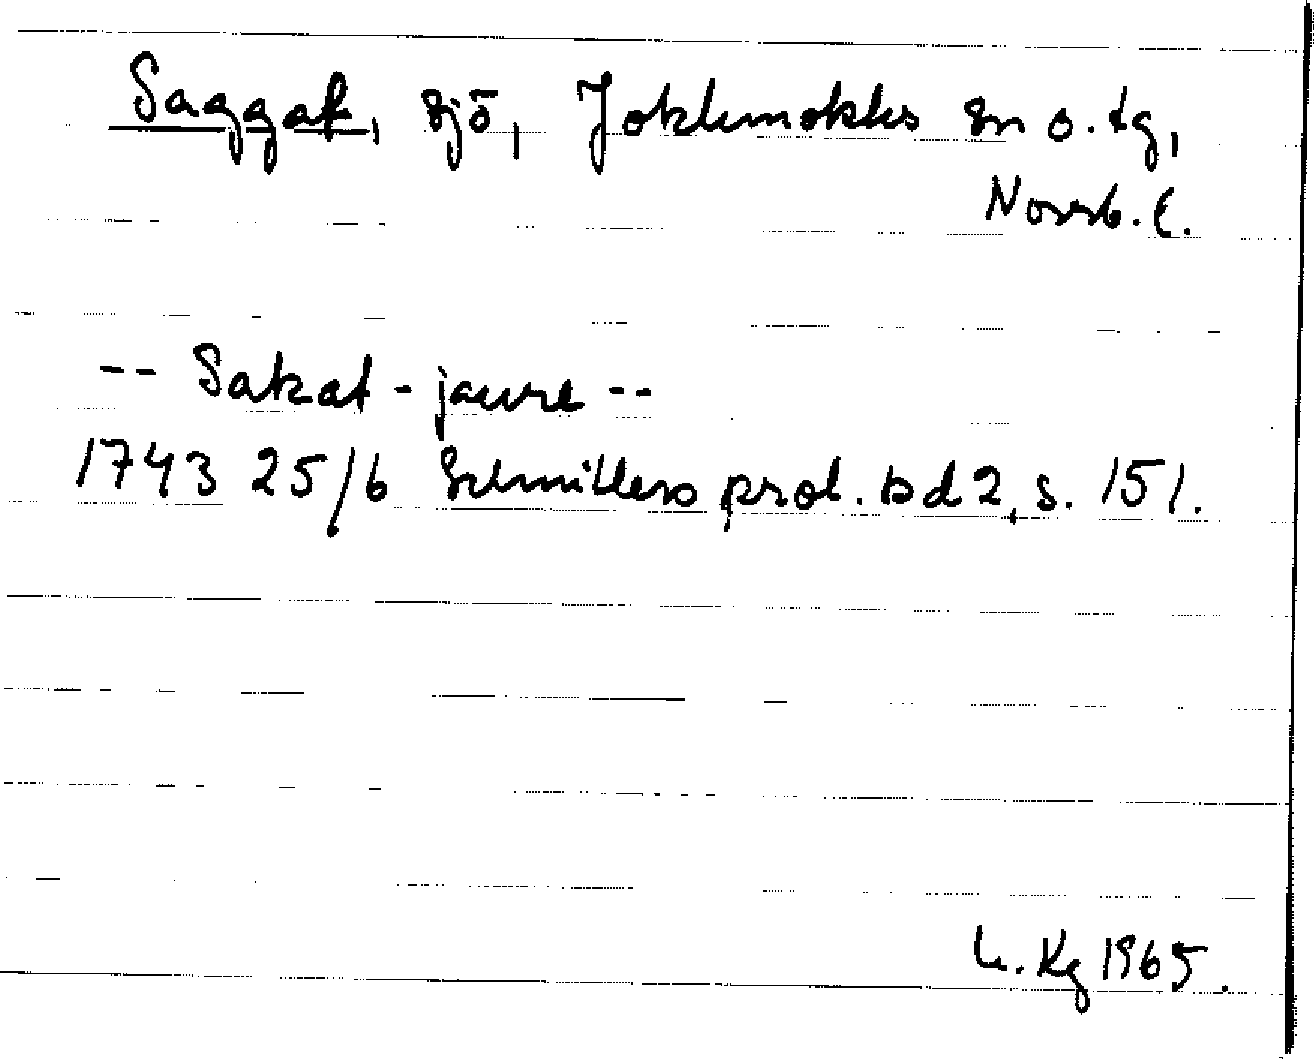 Saggat, sjö, Jokkmokks sn o. tg,
Norrb. l.
-- Sakat-jaure --
1743 25/6 Schnitlers prot. bd 2, s. 151.
Kg 1965.